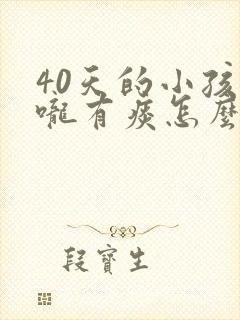 40天的小孩
嚨有痰怎麼
段寶生